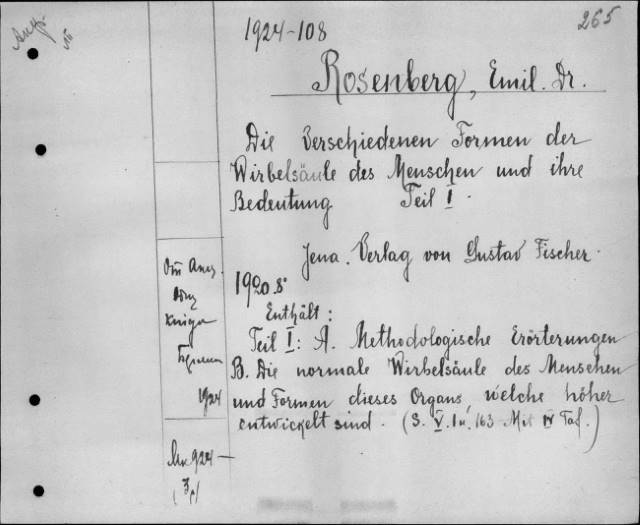 265
1924-108
Rosenberg, Emil. Dr.
Die Verschiedenen Formen der
Wirbelsäule des Menschen und ihre
Bedeutung Teil I.
Jena. Verlag von Gustav Fischer.
1920 8°
Enthält:
Teil I: A. Methodologische Erörterungen
B. Die normale Wirbelsäule des Menschen
und Formen dieses Organs, welche höher
entwickelt sind. (S. V. I u. 163 Mit IV Taf.)
1924
924 —